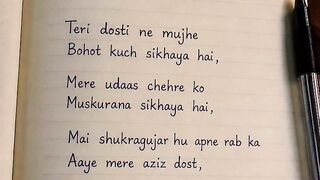 Teri dosti ne mujhe
Bohot kuch sikhaya hai,
Mere udaas chehre ko
Muskurana sikhaya hai,
Mai shukragujar hu apne rab ka
Aaye mere aziz dost,